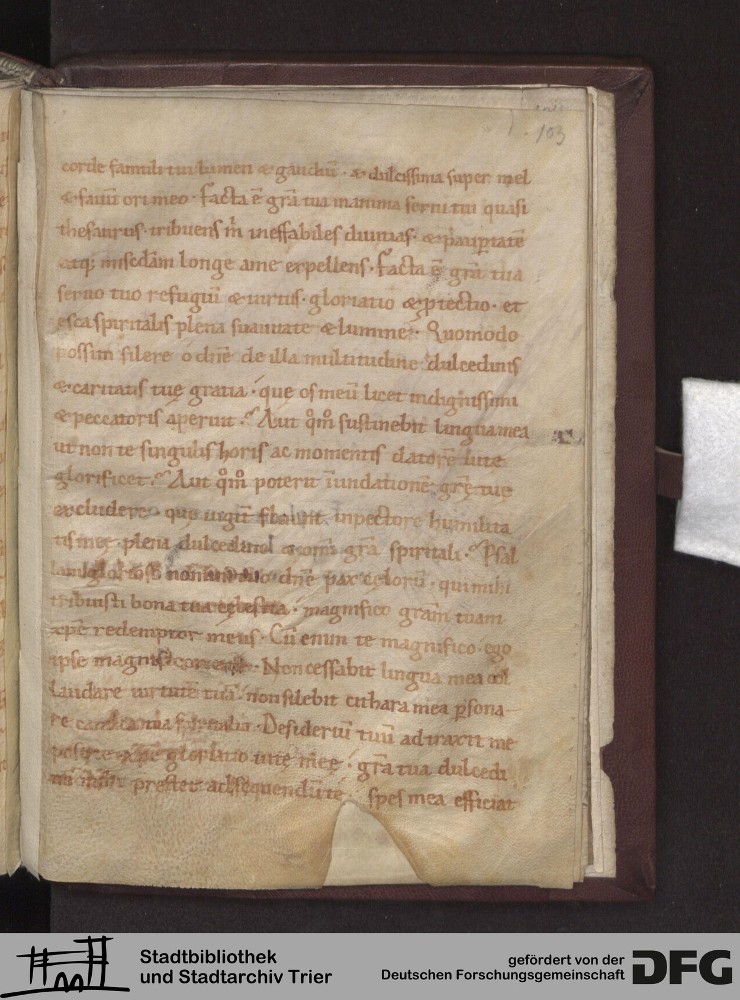 103
corde famuli tui lumen & gaudiū · & dulcissima super mel
& fauū ori meo · Facta ē grā tua in anima serui tui quasi
thesaurus · tribuens m̄ ineffabiles diuitias · & paup̄tatē
atq; longe a me expellens · Facta ē grā tua
seruo tuo refugiū & uirtus · gloriatio & ptectio · et
esca spiritalis plena suauitate & lumine · Quomodo
possim silere o dn̄e de illa multitudine dulcedinis
& caritatis tuę gratia · que os meū licet indignissimi
& peccatoris aperuit · Aut qm̊ sustinebit lingua mea
ut non te singulis horis ac momentis datorē uitę
glorificet · Aut qm̊ poterit inundationē grę tuę
excludere que in pectore humilita
tis meę · plena & omī grā spiritali · Psal
nomini tuo dn̄e pax cęlorū · qui mihi
tribuisti bona tua · magnifico grām tuam
xp̄e redemptor meus · Cū enim te magnifico · ego
ipse · Non cessabit lingua mea col
laudare uirtutē tuā · non silebit cithara mea psona
re · Desideriū tuū adtraxit me
gloriatio uitę meę · grā tua dulcedi
prestet ad sequendū te · spes mea efficiat
Stadtbibliothek
und Stadtarchiv Trier
gefördert von der
Deutschen Forschungsgemeinschaft
DFG